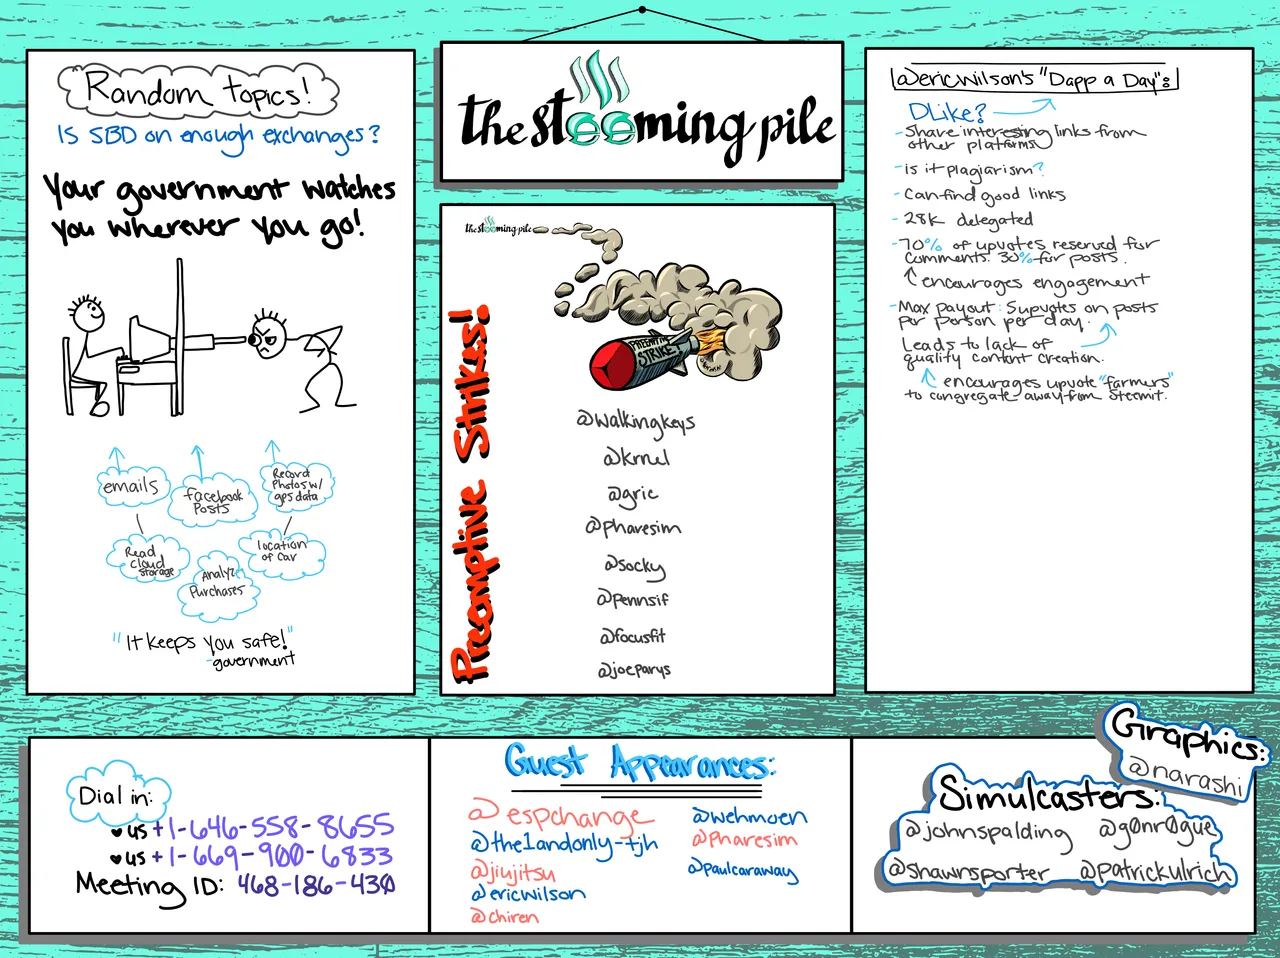 Random topics!
Is SBD on enough exchanges?
Your government watches
you wherever you go!
emails
facebook
posts
Record
Photos w/
gps data
Read
cloud
storage
Analyze
Purchases
location
of car
"It keeps you safe!"
-government
the steeming pile
the steeming pile
Preemptive Strikes!
PREEMPTIVE
STRIKE!
@walkingkeys
@krnel
@gric
@pharesim
@socky
@pennsif
@focusfit
@joeparys
@ericwilson's "Dapp a Day":
DLike?
- Share interesting links from
other platforms
- is it plagiarism?
- Can find good links
- 28K delegated
- 70% of upvotes reserved for
comments. 30% for posts.
encourages engagement
- Max payout: 5upvotes on posts
per person per day.
Leads to lack of
quality content creation.
encourages upvote "farmers"
to congregate away from steemit.
Dial in:
♥ US +1-646-558-8655
♥ US +1-669-900-6833
Meeting ID: 468-186-430
Guest Appearances:
@espchange
@the1andonly-tjh
@jiujitsu
@ericwilson
@chiren
@wehmoen
@Pharesim
@paulcaraway
Graphics:
@narashi
Simulcasters:
@johnspalding @g0nr0gue
@shawnsporter @patrickulrich